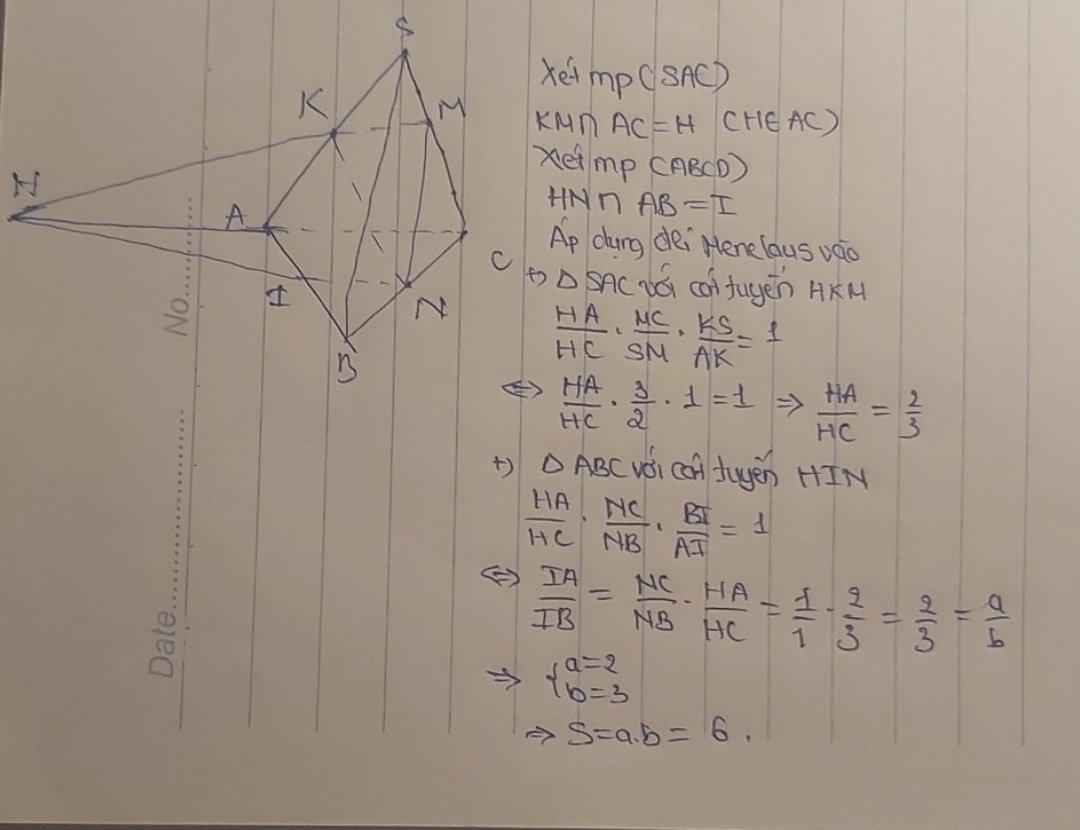 S
K
M
H
A
I
N
B
C
No.
Date
Xét mp (SAC)
KM ∩ AC = H (H ∈ AC)
Xét mp (ABCD)
HN ∩ AB = I
Áp dụng đlí Menelaus vào
+) Δ SAC với cát tuyến HKM
HA/HC . MC/SM . KS/AK = 1
⇔ HA/HC . 3/2 . 1 = 1 ⇒ HA/HC = 2/3
+) Δ ABC với cát tuyến HIN
HA/HC . NC/NB . BI/AI = 1
⇔ IA/IB = NC/NB . HA/HC = 1/1 . 2/3 = 2/3 = a/b
⇒ { a=2
b=3
⇒ S=a.b = 6 .